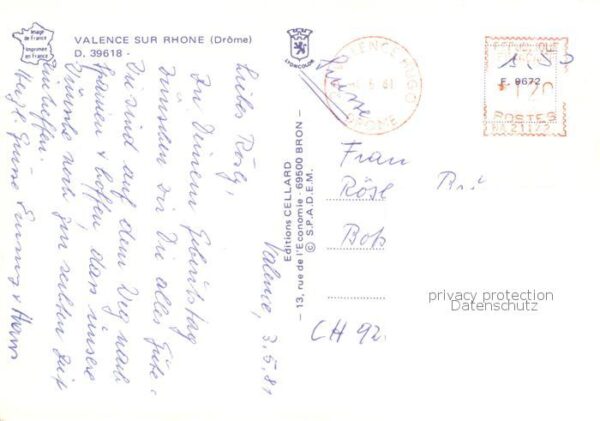 Image
de France
Imprimée
en France
VALENCE SUR RHONE (Drôme)
D. 39618 -
LYONCOLOR
Editions CELLARD
- 13, rue de l'Economie - 69500 BRON -
© S.P.A.D.E.M.
Valence, 3.5.81
Liebes Rösly,
Zu Deinem Geburtstag
wünschen wir Dir alles Gute.
Wir sind auf dem Weg nach
Spanien & hoffen dass unsere
noch zur rechten Zeit
eintreffen.
Herzl. Grüsse
Suisse
VALENCE HUGO
DROME
REPUBLIQUE
1.50
F. 9672
1,20
POSTES
Frau
Röse
Bos
CH 92.
privacy protection
Datenschutz